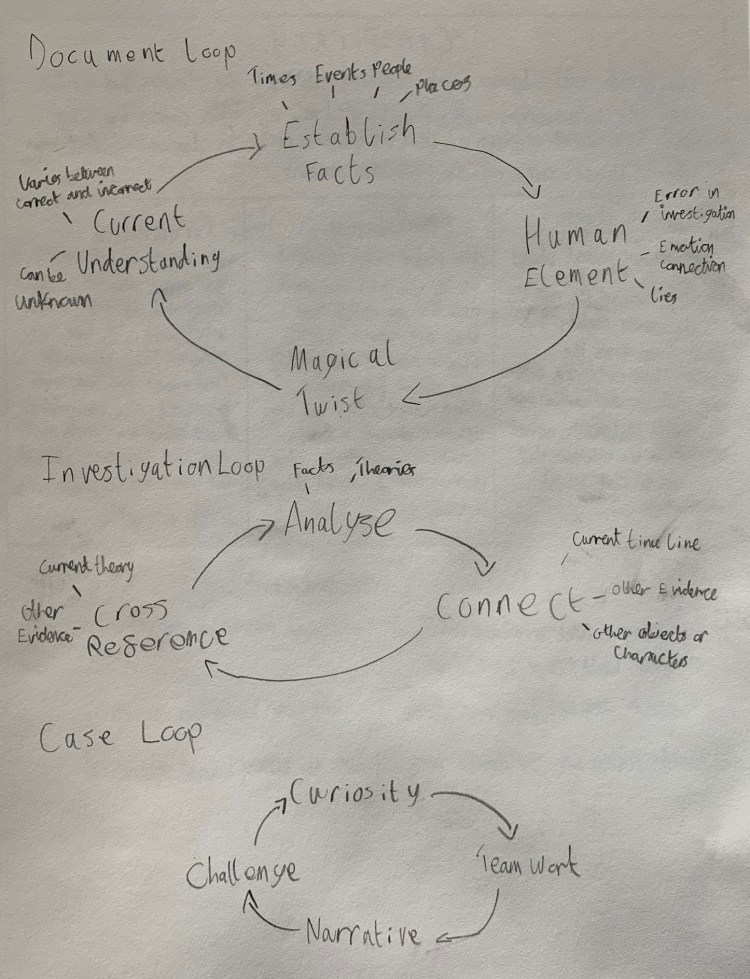 Document Loop
Times Events People Places
Establish
Facts
Varies between
correct and incorrect
Current
Understanding
Can be
unknown
Human
Element
Error in
investigation
Emotion
connection
Lies
Magical
Twist
Investigation Loop
Facts, Theories
Analyse
Current time line
Connect - other Evidence
other objects or
Characters
Current theory
Other
Evidence-
Cross
Reference
Case Loop
Curiosity
Team Work
Narrative
Challenge